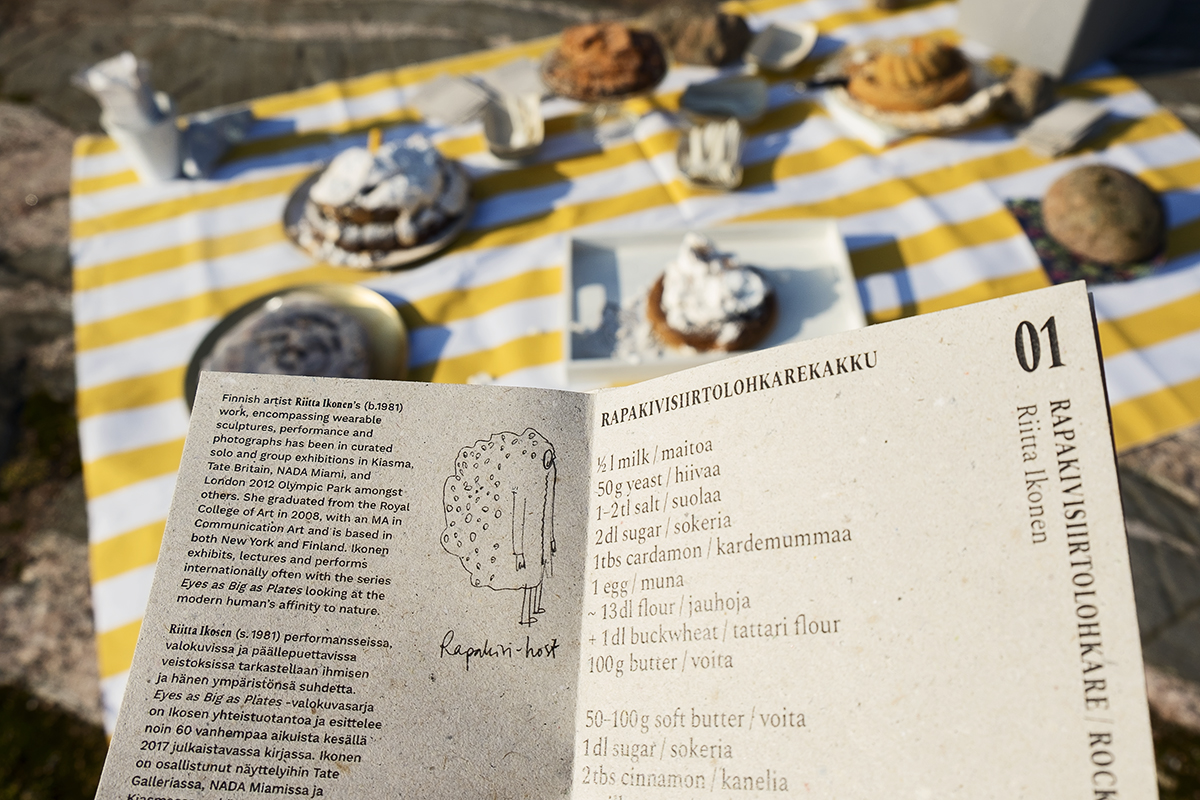 Finnish artist Riitta Ikonen's (b.1981)
work, encompassing wearable
sculptures, performance and
photographs has been in curated
solo and group exhibitions in Kiasma,
Tate Britain, NADA Miami, and
London 2012 Olympic Park amongst
others. She graduated from the Royal
College of Art in 2008, with an MA in
Communication Art and is based in
both New York and Finland. Ikonen
exhibits, lectures and performs
internationally often with the series
Eyes as Big as Plates looking at the
modern human's affinity to nature.
Riitta Ikosen (s. 1981) performansseissa,
valokuvissa ja päällepuettavissa
veistoksissa tarkastellaan ihmisen
ja hänen ympäristönsä suhdetta.
Eyes as Big as Plates -valokuvasarja
on Ikosen yhteistuotantoa ja esittelee
noin 60 vanhempaa aikuista kesällä
2017 julkaistavassa kirjassa. Ikonen
on osallistunut näyttelyihin Tate
Galleriassa, NADA Miamissa ja
Rapakivi-host
RAPAKIVISIIRTOLOHKAREKAKKU
½ l milk / maitoa
50g yeast / hiivaa
1–2tl salt / suolaa
2dl sugar / sokeria
1tbs cardamon / kardemummaa
1 egg / muna
~ 13dl flour / jauhoja
+ 1dl buckwheat / tattari flour
100g butter / voita
50–100g soft butter / voita
1dl sugar / sokeria
2tbs cinnamon / kanelia
01
RAPAKIVISIIRTOLOHKARE / ROCK
Riitta Ikonen